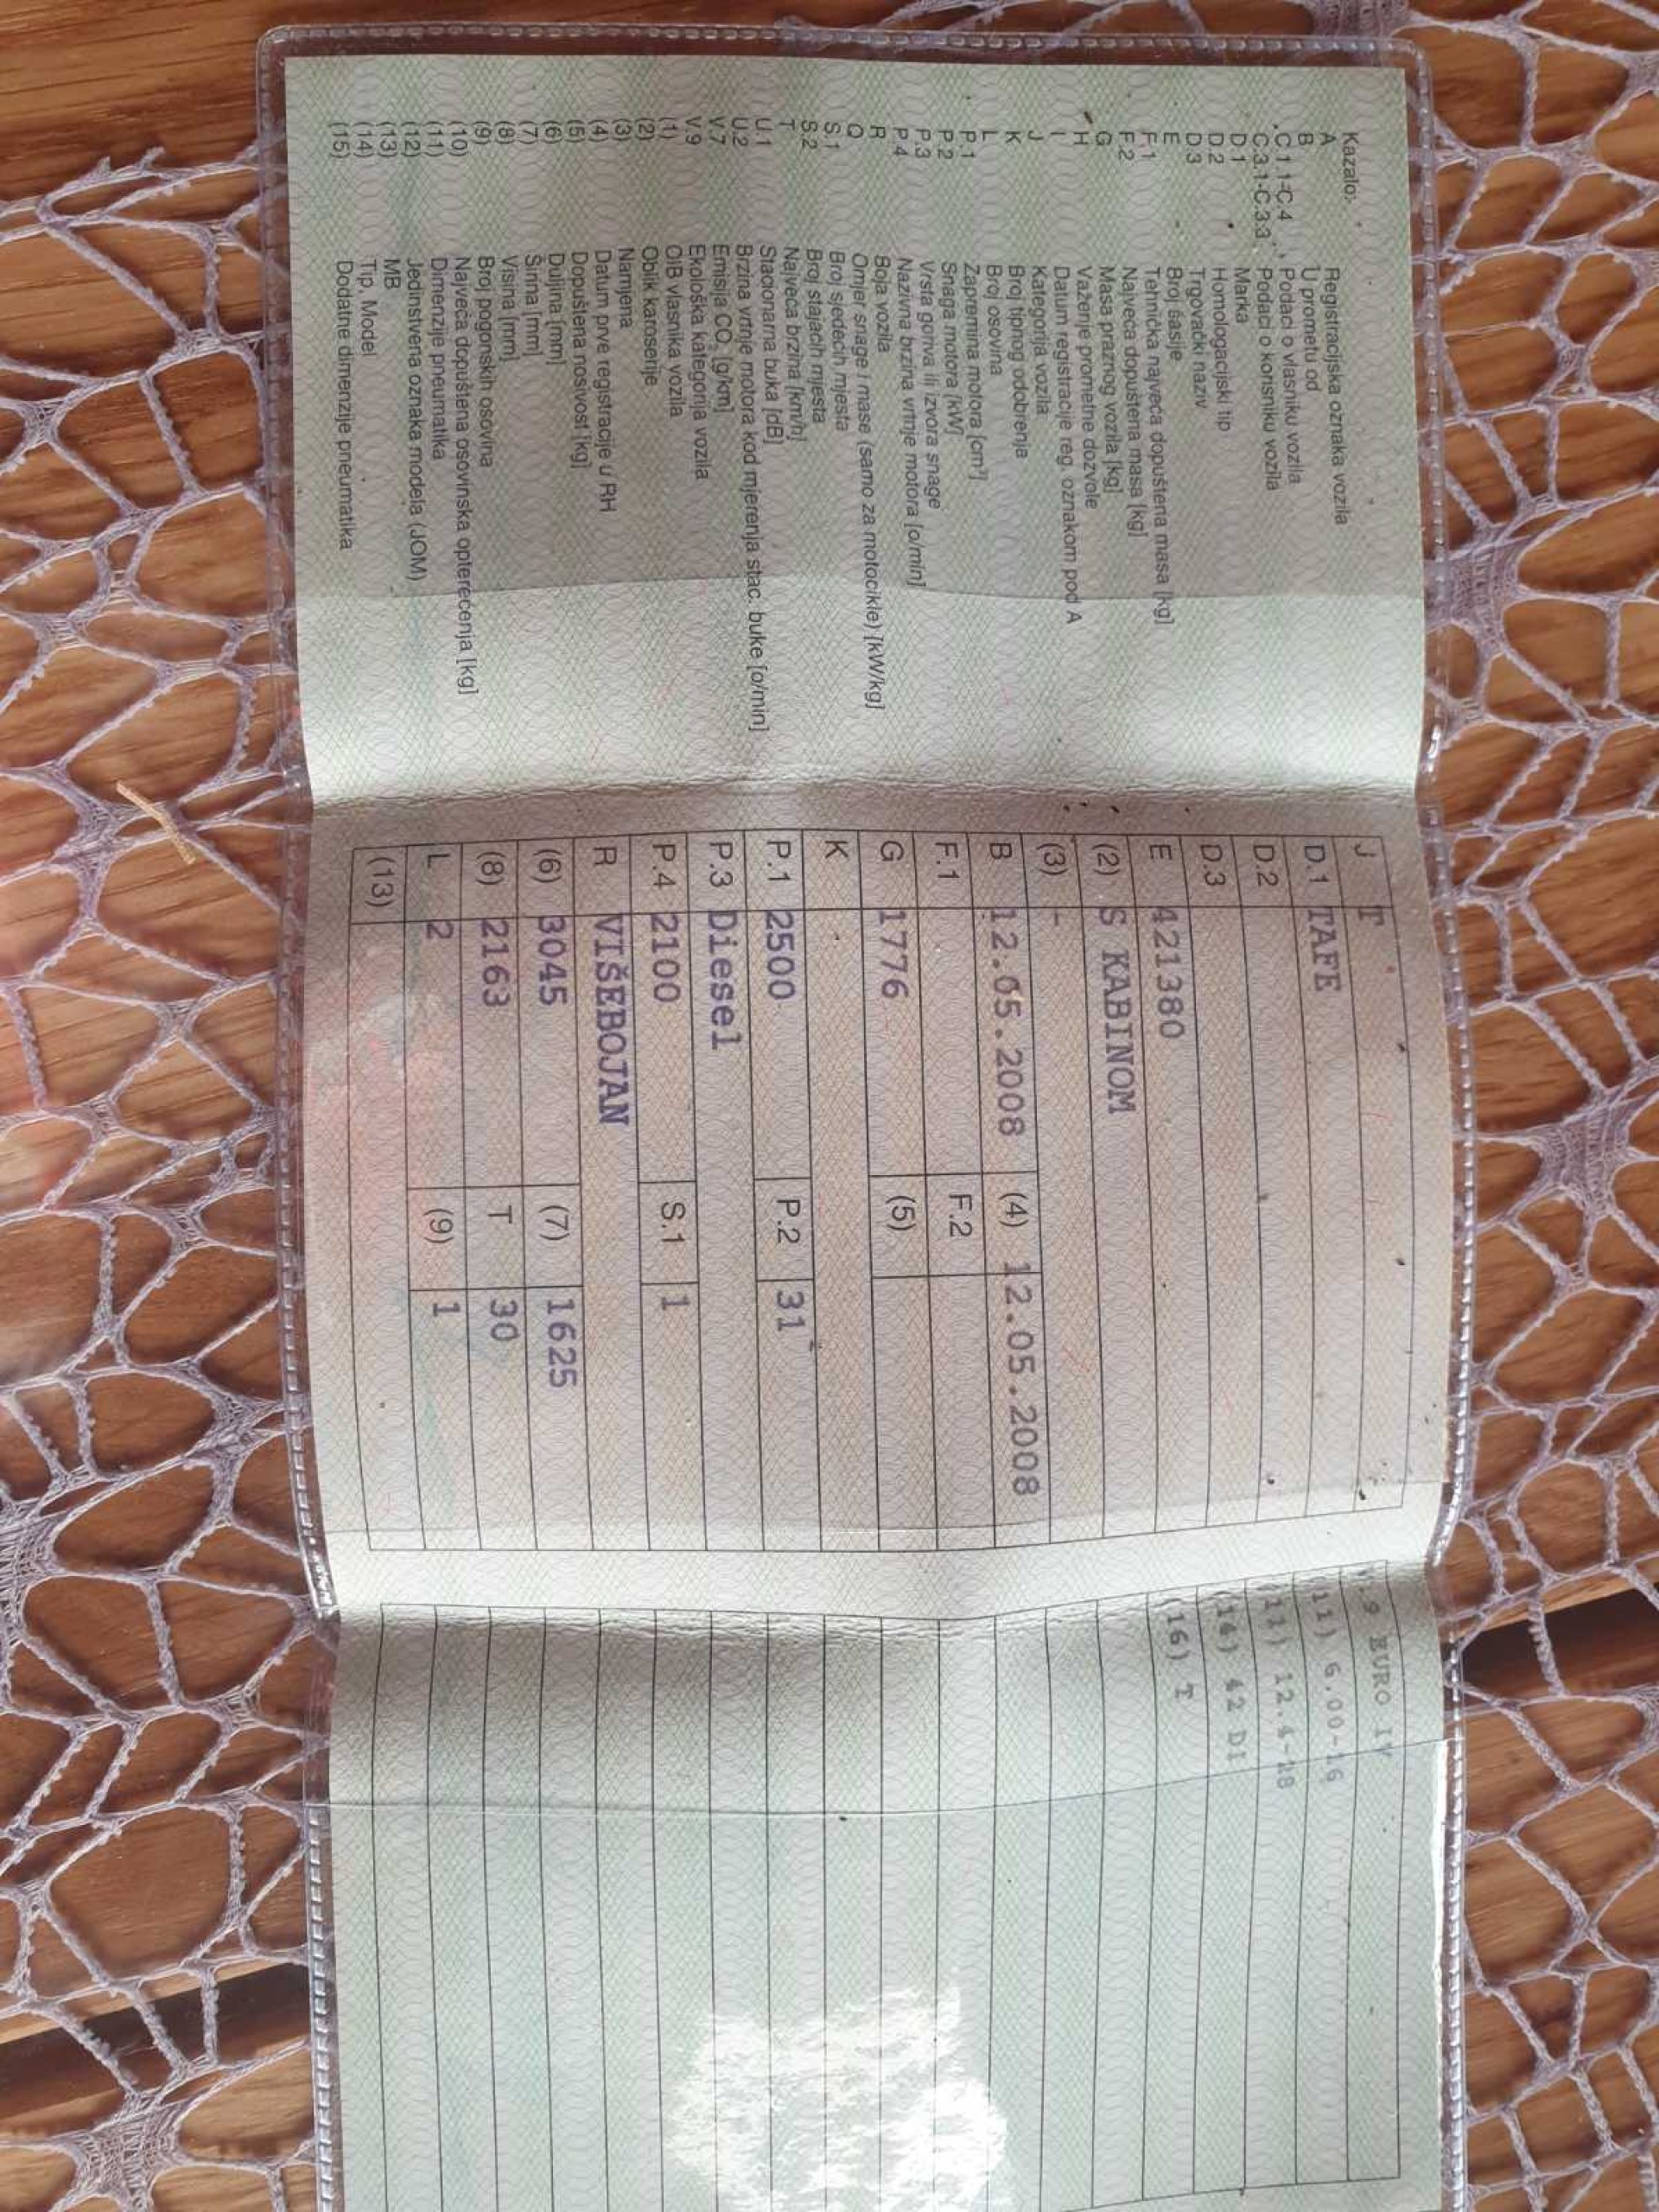 Kazalo:
A Registracijska oznaka vozila
B U prometu od
C.1.1-C.4 Podaci o vlasniku vozila
C.3.1-C.3.3 Podaci o korisniku vozila
D.1 Marka
D.2 Homologacijski tip
D.3 Trgovački naziv
E Broj šasije
F.1 Tehnička najveća dopuštena masa [kg]
F.2 Najveća dopuštena masa [kg]
G Masa praznog vozila [kg]
H Važenje prometne dozvole
I Datum registracije reg. oznakom pod A
J Kategorija vozila
K Broj tipnog odobrenja
L Broj osovina
P.1 Zapremina motora [cm³]
P.2 Snaga motora [kW]
P.3 Vrsta goriva ili izvora snage
P.4 Nazivna brzina vrtnje motora [o/min]
R Boja vozila
Q Omjer snage i mase (samo za motocikle) [kW/kg]
S.1 Broj sjedećih mjesta
S.2 Broj stajaćih mjesta
T Najveća brzina [km/h]
U.1 Stacionarna buka [dB]
U.2 Brzina vrtnje motora kod mjerenja stac. buke [o/min]
V.7 Emisija CO₂ [g/km]
V.9 Ekološka kategorija vozila
(1) OIB vlasnika vozila
(2) Oblik karoserije
(3) Namjena
(4) Datum prve registracije u RH
(5) Dopuštena nosivost [kg]
(6) Duljina [mm]
(7) Širina [mm]
(8) Visina [mm]
(9) Broj pogonskih osovina
(10) Najveća dopuštena osovinska opterećenja [kg]
(11) Dimenzije pneumatika
(12) Jedinstvena oznaka modela (JOM)
(13) MB
(14) Tip, Model
(15) Dodatne dimenzije pneumatika
J T
D.1 TAFE
D.2
D.3
E 421380
(2) S KABINOM
(3) -
B 12.05.2008 (4) 12.05.2008
F.1 F.2
G 1776 (5)
K
P.1 2500 P.2 31
P.3 Diesel
P.4 2100 S.1 1
R VIŠEBOJAN
(6) 3045 (7) 1625
(8) 2163 T 30
L 2 (9) 1
(13)
.9 EURO IV
11) 6.00-16
11) 12.4-28
(14) 42 DI
(16) T